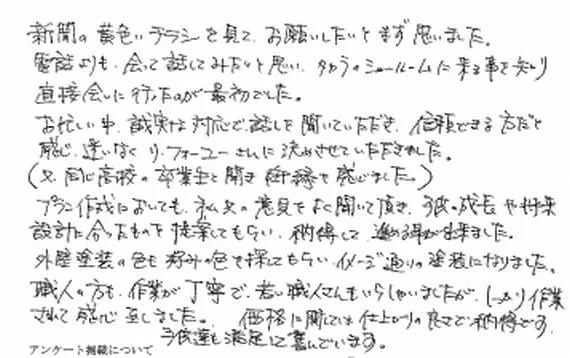 新聞の黄色いチラシを見て、お願いしたいとまず思いました。
電話よりも、会って話してみたいと思い、タカラのショールームに来る事を知り
直接会いに行ったのが最初でした。
お忙い中、誠実な対応で話しを聞いていただき、信頼できる方だと
感じ、迷いなくリ・フォーユーさんに決めさせていただきました。
(又、同じ高校の卒業生と聞き御縁を感じました。)
プラン作成においても、私共の意見をよく聞いて頂き、子供の成長や将来
設計に合ったものを提案してもらい、納得して進める事が出来ました。
外壁塗装の色も好みの色を探してもらい、イメージ通りの塗装になりました。
職人の方も、作業が丁寧で、若い職人さんもいらしゃいましたが、しっかり作業
されて感心致しました。 価格に関しても仕上がりの良さで納得です。
子供達も満足して喜んでいます。
アンケート掲載について